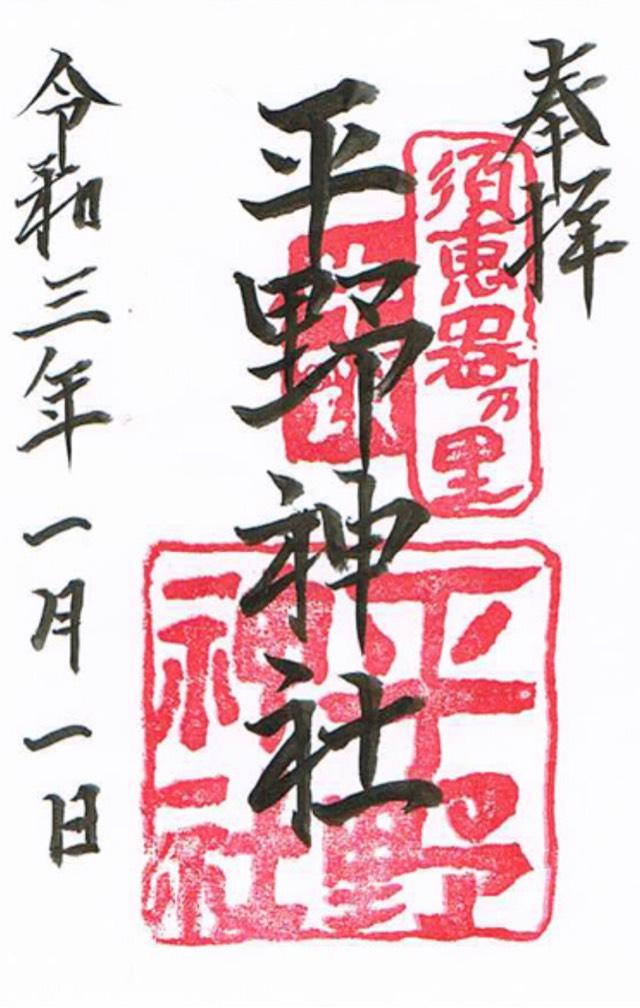 奉拝
須恵器乃里
平野神社
平野
神社
令和三年一月一日